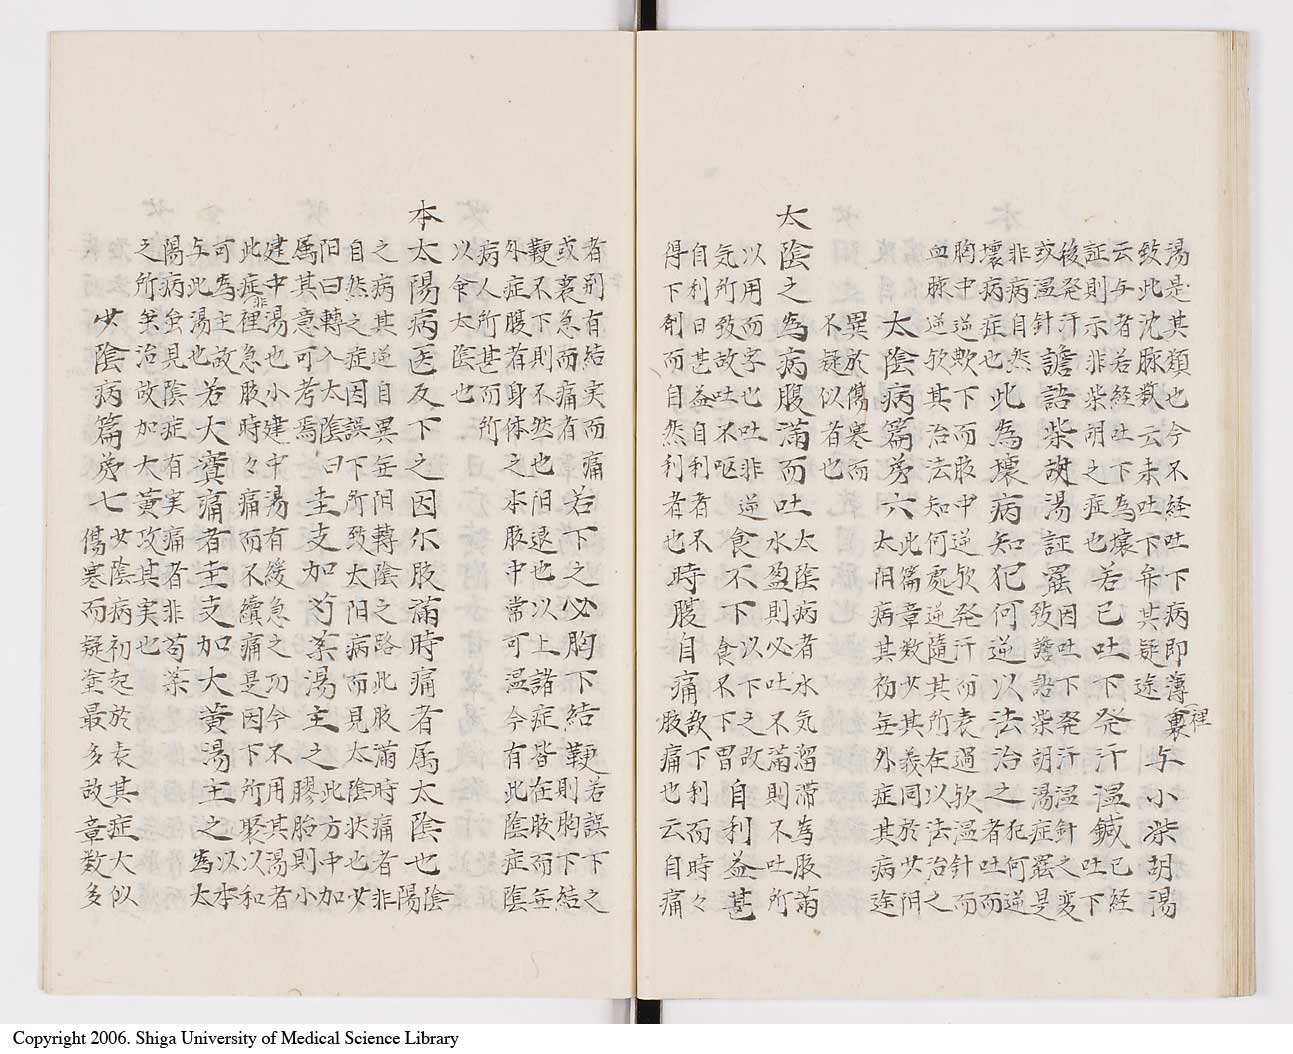 湯是其類也今不経吐下病即薄裏裡
致此沈脉欤云未吐下弁其疑途
与小柴胡湯
云与者若経吐下為壊
証則示非柴胡之症也
若已吐下発汗温鍼
已経
吐下
後発汗
或温針
譫語柴胡湯証罷
因吐下発汗温針之変
致譫語柴胡湯症罷是
非病自然
壊病症也
此為壊病知犯何逆以法治之
犯何逆
者吐而
胸中逆欤下而腹中逆欤発汗而表過欤温針而
血脉逆欤其治法知何處逆随其所在以法治之
太陰病篇㐧六
此篇章数少其義同於少阴
太阳病其初無外症其病途
異於傷寒而
不疑似者也
太陰之為病腹滿而吐
太陰病者水気溜滞為腹滿
水盈則必吐不滿則不吐所
以用而字也吐非逆
気所致故吐不呕
食不下
以下之故
食不下胃
自利益甚
自利日甚益自利者不
得下剤而自然利者也
時腹自痛
故下利而時々
腹痛也云自痛
者别有結実而痛
或裏急而痛者
若下之必胸下結鞕
若誤下之
則胸下結
鞕不下則不然也阳退也以上諸症皆在腹而無
外症腹者身体之本腹中常可温今有此陰症陰
病人所甚而所
以食太陰也
本太陽病医反下之因尔腹滿時痛者属太陰也
陰
陽
之病其逆自異無阳轉陰之路此腹滿時痛者非
自然之症因誤下所致太阳病而見太陰状也少
阳曰轉入太陰曰
属其意可考焉
圭支加芍薬湯主之
此方中加
膠胎則小
建中湯也小建中湯有緩急之功今不用其湯者
此症非裡急腹時々痛而不續痛是因下所聚以和
可為主故
与此湯也
若大實痛者圭支加大黄湯主之
以本
為太
陽病虽見陰症有実痛者非芍薬
之所治故加大黄攻其実也
少陰病篇㐧七
少陰病初起於表其症大似
傷寒而疑塗最多故章数多
Copyright 2006. Shiga University of Medical Science Library